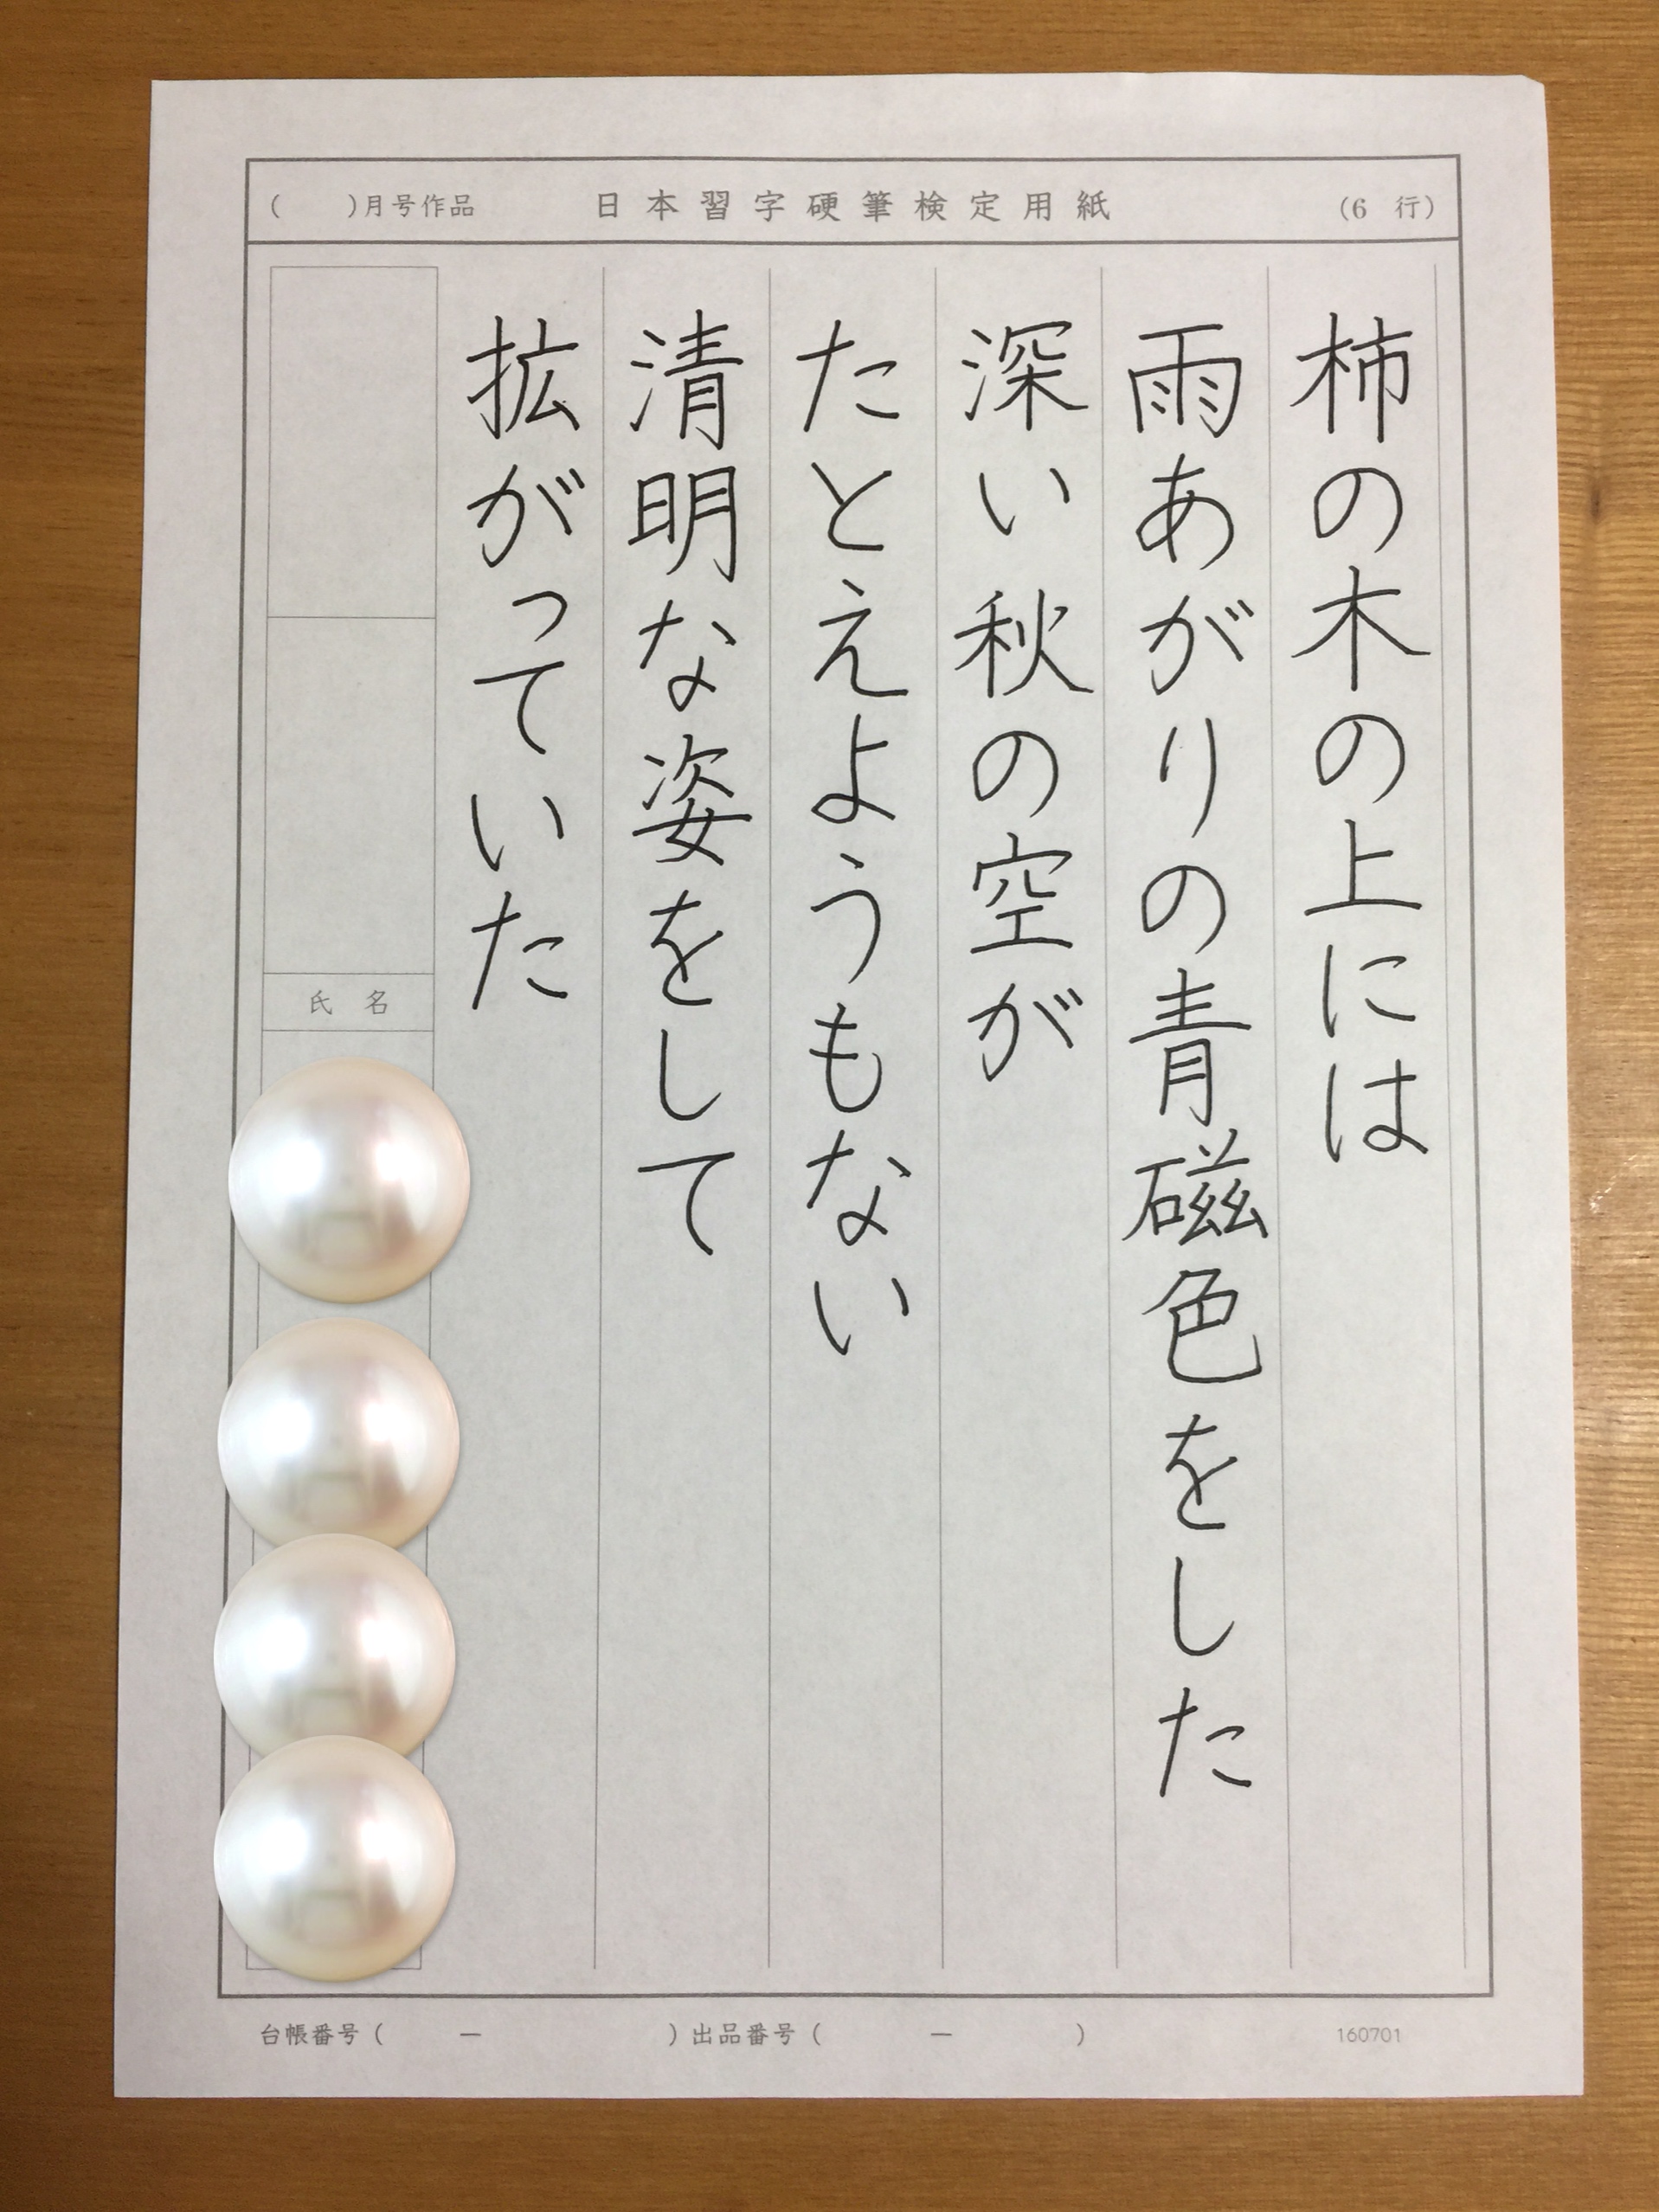 ( )月号作品 日本習字硬筆検定用紙 (6 行)
柿の木の上には
雨あがりの青磁色をした
深い秋の空が
たとえようもない
清明な姿をして
拡がっていた
氏名
台帳番号( ー )出品番号( ー ) 160701